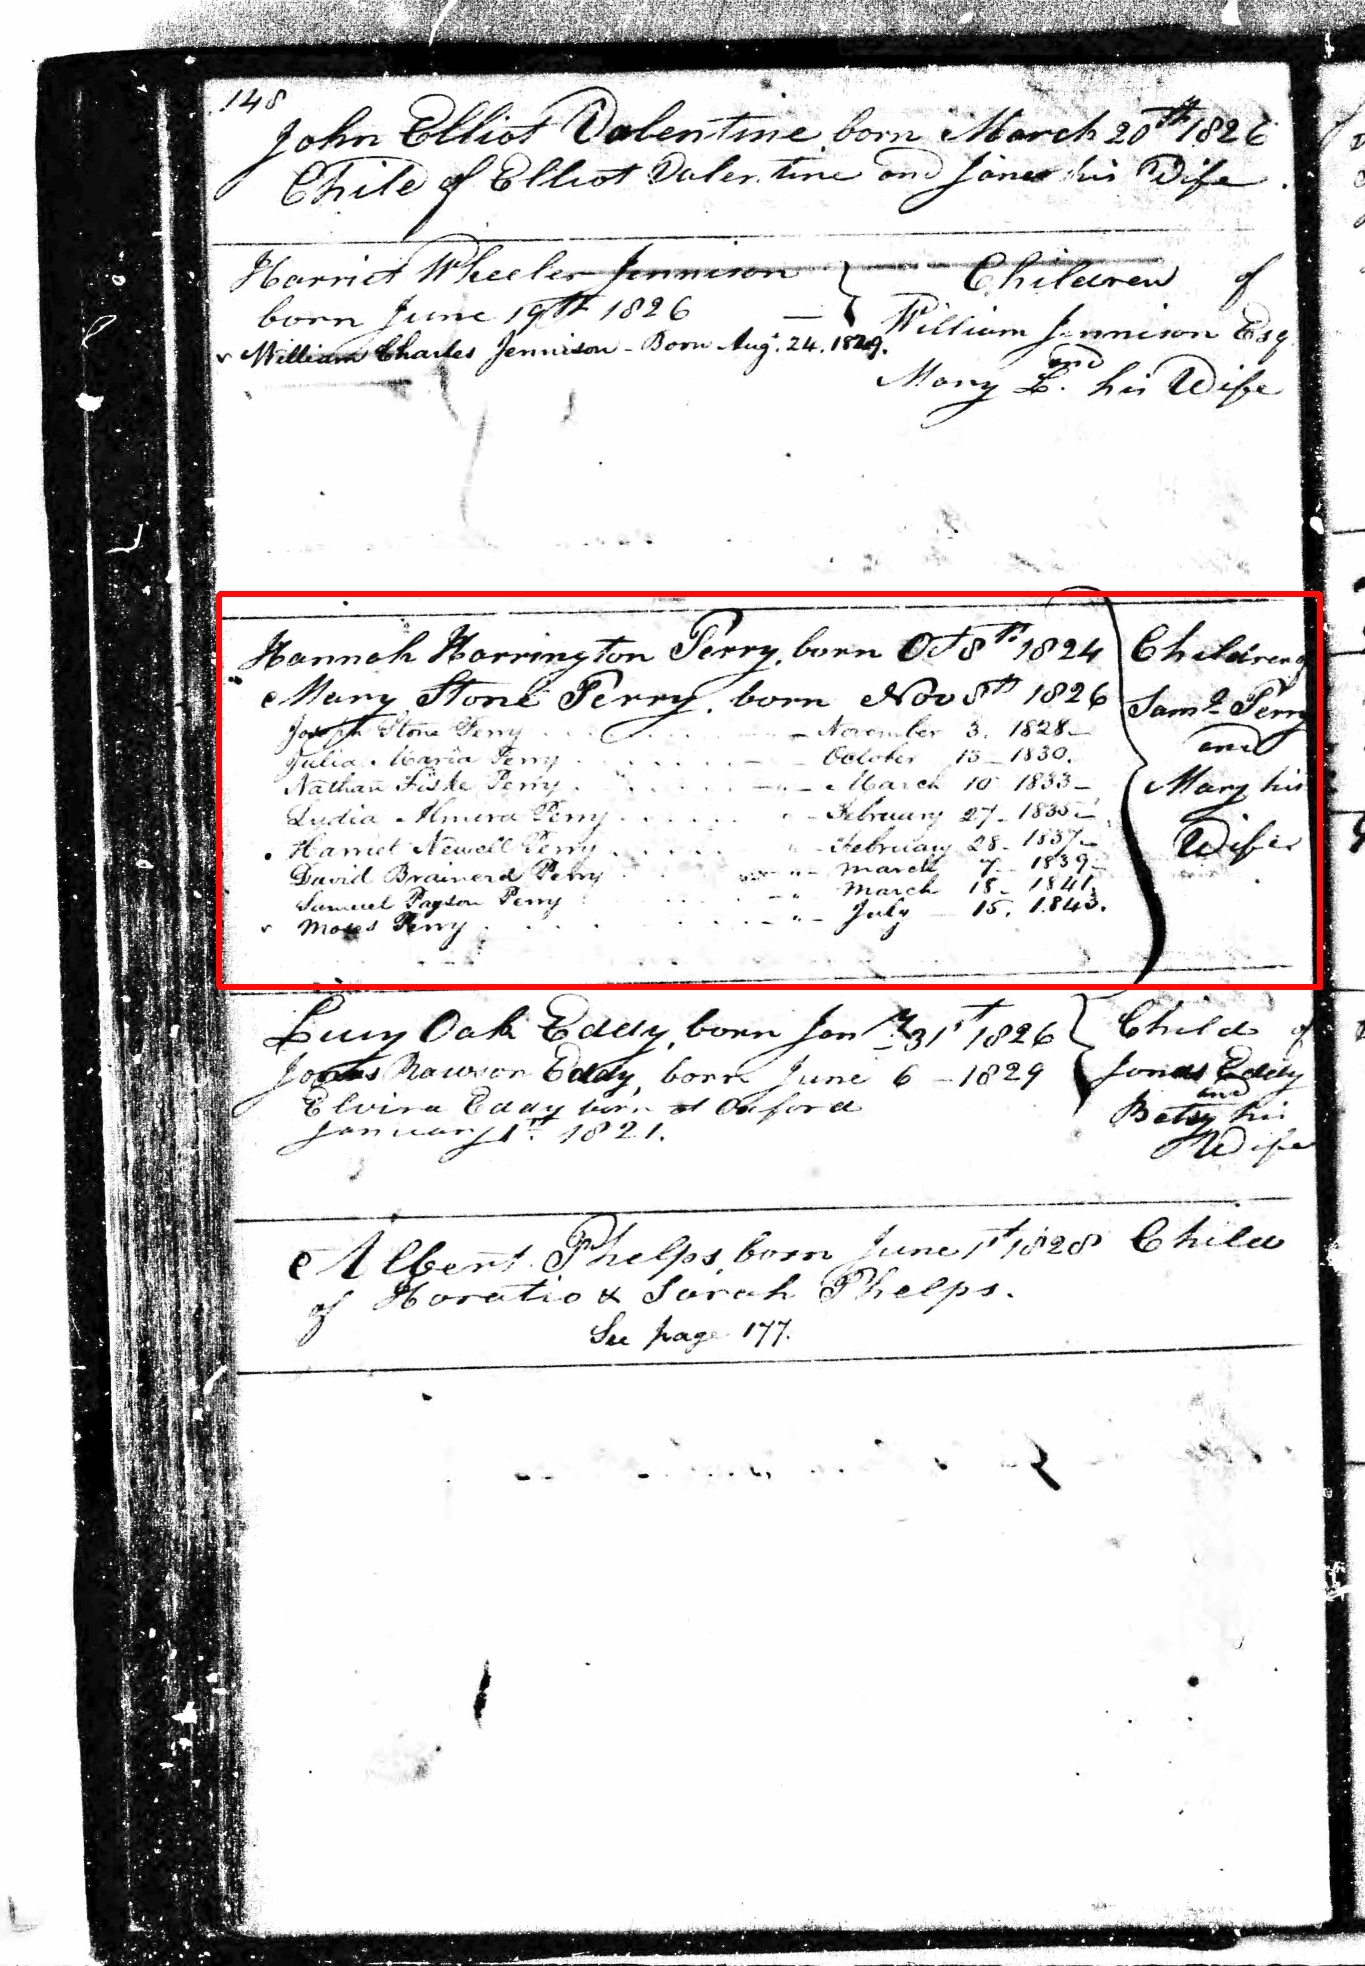 148
John Elliot Valentine, born March 20th 1826
Child of Elliot Valentine and Jane his Wife.
Harriet Wheeler Jennison
born June 19th 1826
William Charles Jennison - Born Aug. 24. 1829.
Children of
William Jennison Esq
and
Mary L. his Wife
Hannah Harrington Perry, born Oct 8th 1824
Mary Stone Perry, born Nov 8th 1826
Joseph Stone Perry - November 3. 1828-
Julia Maria Perry - - October 15- 1830.
Nathan Fiske Perry - " - March 10 1833-
Lydia Almera Perry " - February 27- 1835-
Harriet Newell Perry " - February 28- 1837-
David Brainerd Perry " - March 7- 1839-
Samuel Payson Perry - " - March 18- 1841.
Moses Perry - " - July 15. 1843.
Children of
Saml Perry
and
Mary his
Wife
Lucy Oak Eddy, born Jany 31st 1826
Jonas Rawson Eddy, born June 6 - 1829
Elvira Eddy born at Oxford
January 1st 1821.
Child of
Jonas Eddy
and
Betsy his
Wife
Albert Phelps, born June 1st 1828 Child
of Horatio & Sarah Phelps.
See page 177.